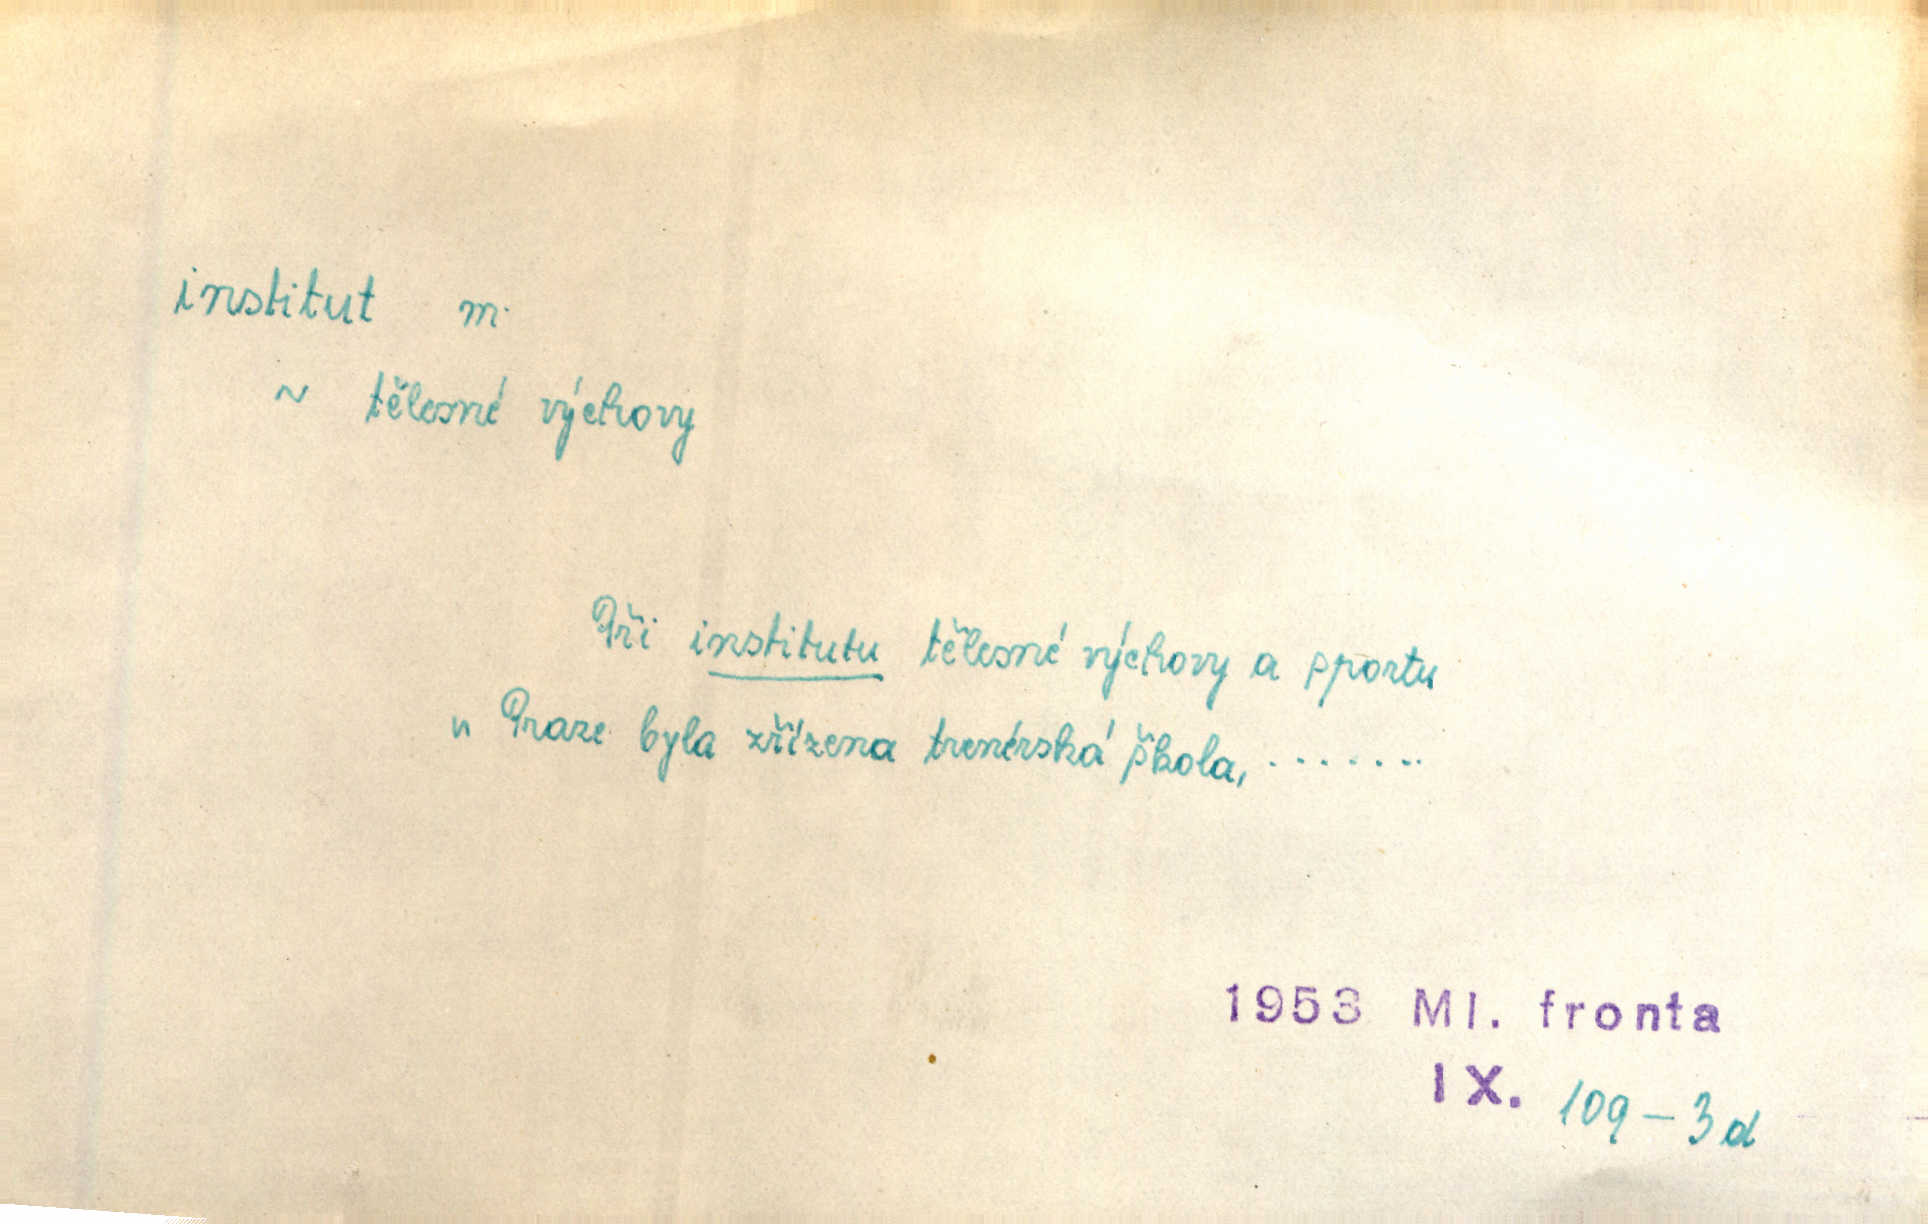 institut m.
~ tělesné výchovy
Při institutu tělesné výchovy a sportu
v Praze byla zřízena trenérská škola, .......
1953 Ml. fronta
IX. 109-3d